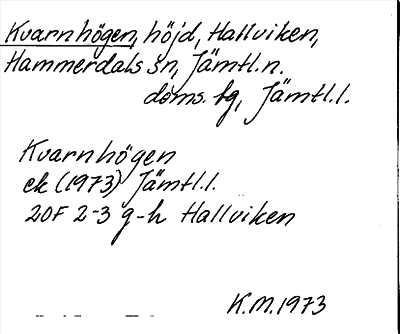 Kvarnhögen, höjd, Hallviken,
Hammerdals sn, Jämtl. n.
doms. fg, Jämtl. l.
Kvarnhögen
ek (1973) Jämtl. l.
20F 2-3 g-h Hallviken
K.M. 1973